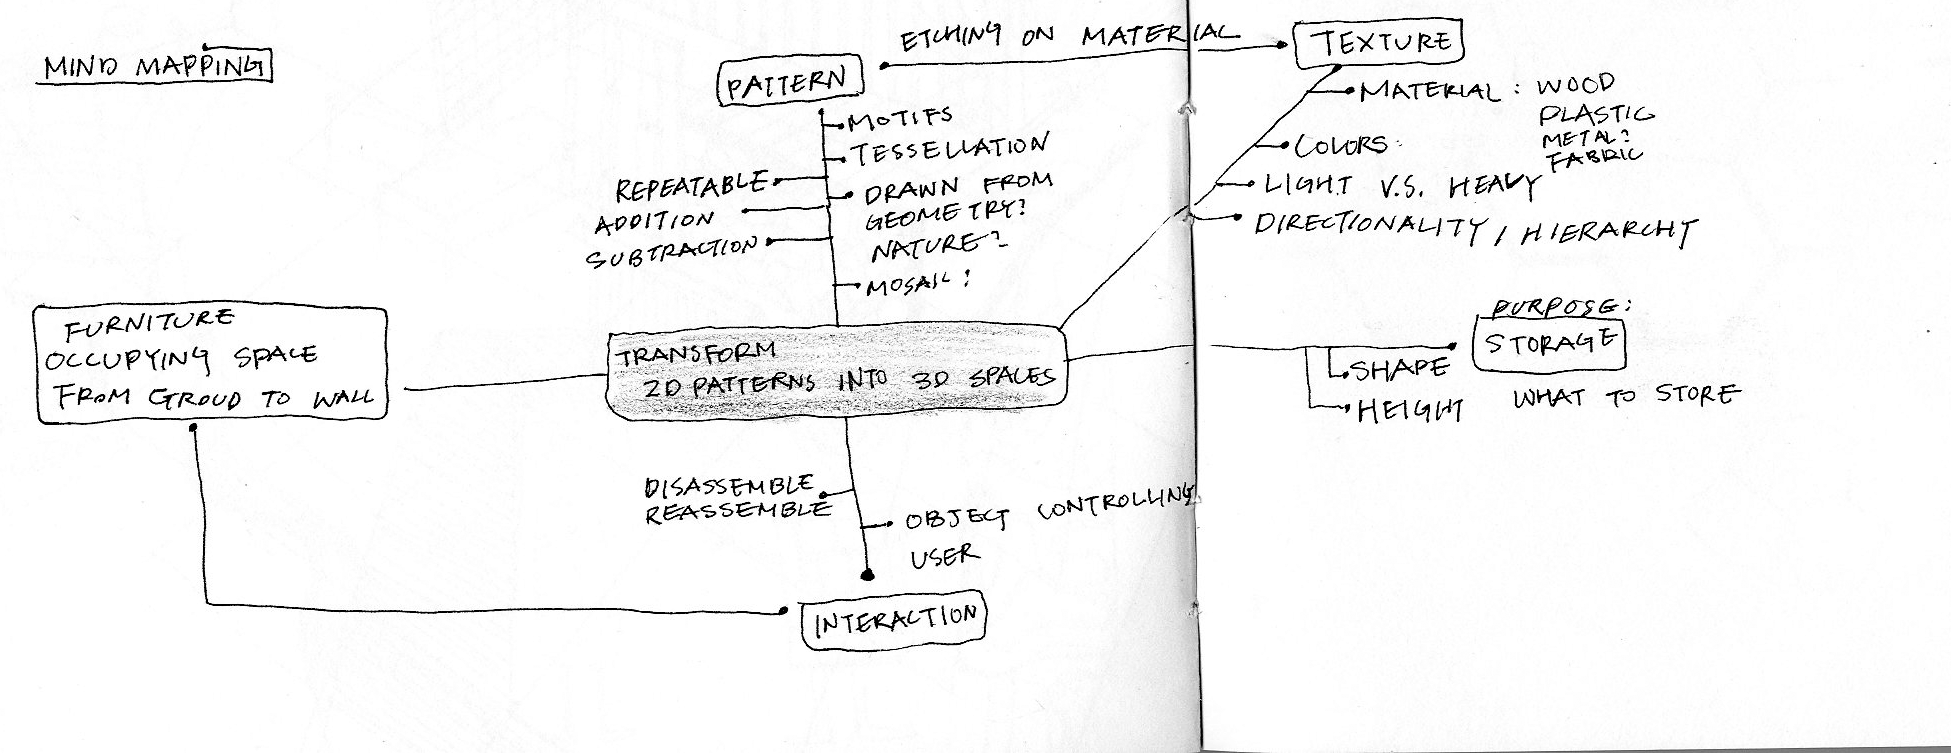 MIND MAPPING
ETCHING ON MATERIAL
TEXTURE
PATTERN
MATERIAL : WOOD
PLASTIC
METAL?
FABRIC
MOTIFS
TESSELLATION
COLORS:
REPEATABLE
DRAWN FROM
GEOMETRY?
NATURE?
LIGHT V.S. HEAVY
ADDITION
SUBTRACTION
DIRECTIONALITY / HIERARCHY
MOSAIC?
FURNITURE
OCCUPYING SPACE
FROM GROUD TO WALL
TRANSFORM
2D PATTERNS INTO 3D SPACES
PURPOSE:
STORAGE
SHAPE
HEIGHT
WHAT TO STORE
DISASSEMBLE
REASSEMBLE
OBJECT CONTROLLING
USER
INTERACTION